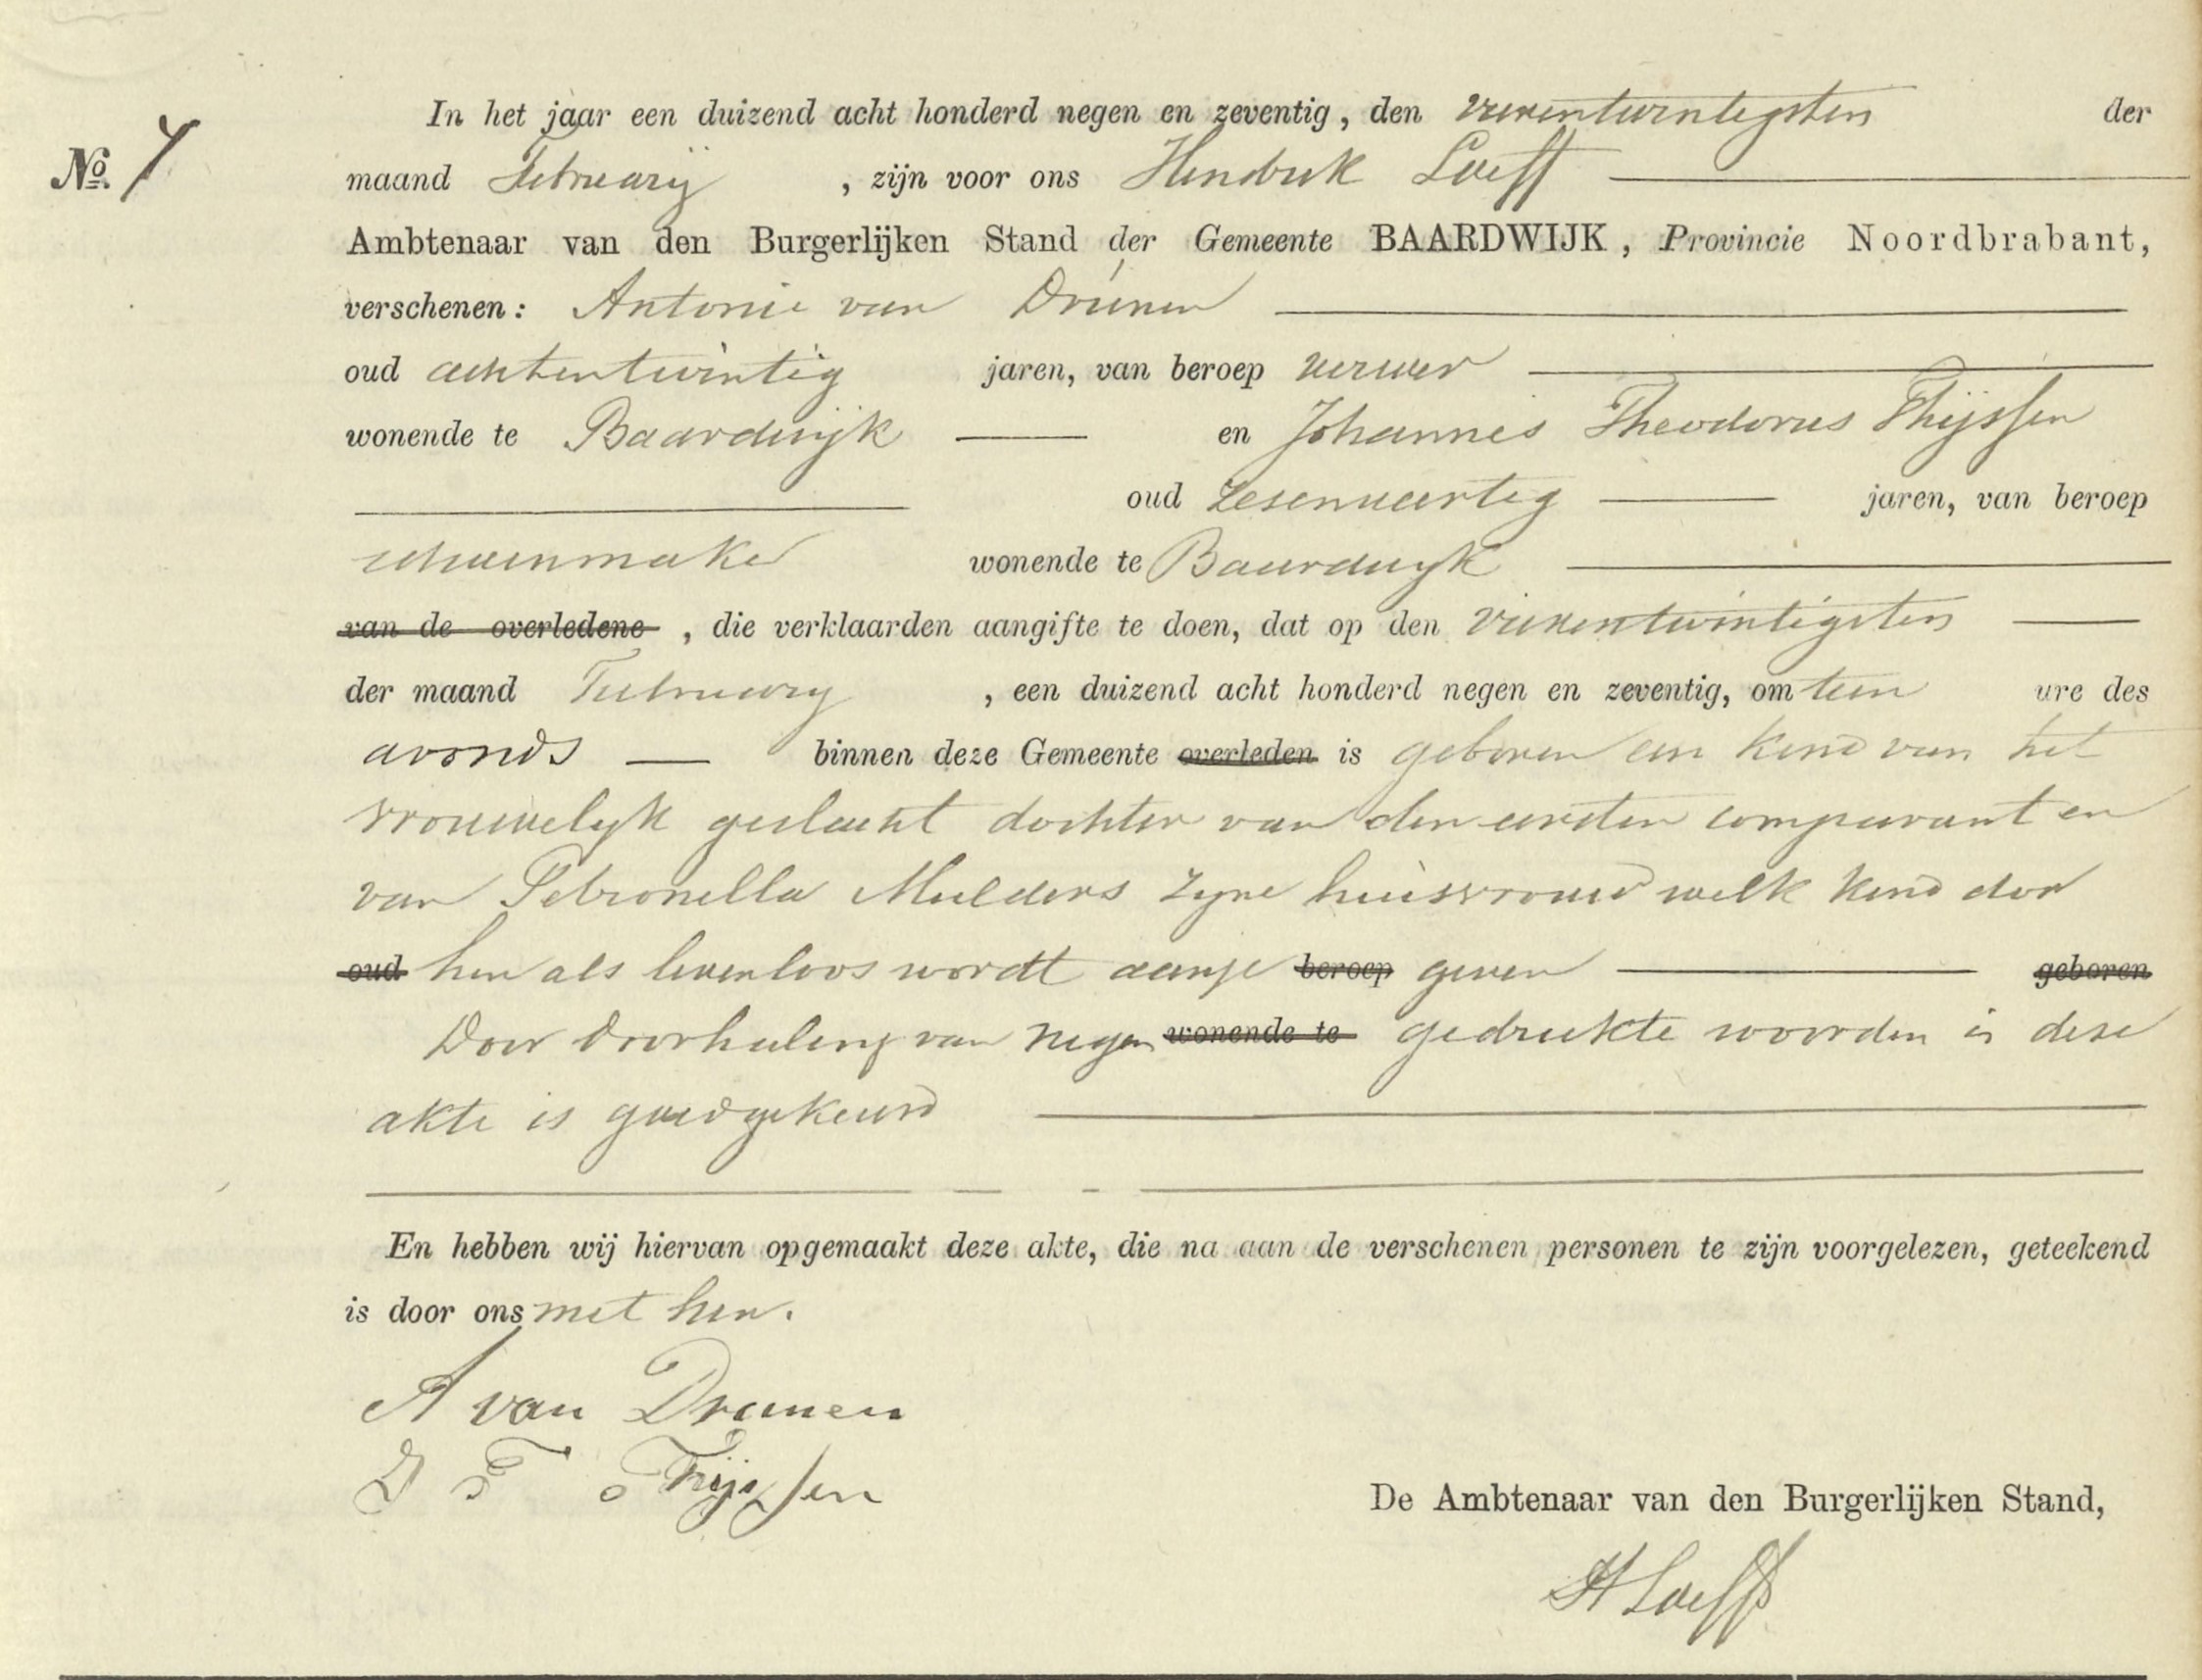 In het jaar een duizend acht honderd negen en zeventig, den vierentwintigsten der
No. 7
maand Februarij , zijn voor ons Hendrik Loeff
Ambtenaar van den Burgerlijken Stand der Gemeente BAARDWIJK, Provincie Noordbrabant,
verschenen: Antonie van Drunen
oud achtentwintig jaren, van beroep verwer
wonende te Baardwijk en Johannes Theodorus Thijssen
oud zesenveertig jaren, van beroep
schoenmaker wonende te Baardwijk
van de overledene , die verklaarden aangifte te doen, dat op den vierentwintigsten
der maand Februarij , een duizend acht honderd negen en zeventig, om tien ure des
avonds binnen deze Gemeente overleden is geboren een kind van het
vrouwelijk geslacht dochter van den eersten comparant en
van Petronella Mulders zijne huisvrouw welk kind door
oud hen als levenloos wordt aange beroep geven geboren
Door doorhaling van negen wonende te gedrukte woorden is deze
akte is goedgekeurd
En hebben wij hiervan opgemaakt deze akte, die na aan de verschenen personen te zijn voorgelezen, geteekend
is door ons met hen.
A van Drunen
J T Thijssen
De Ambtenaar van den Burgerlijken Stand,
H Loeff